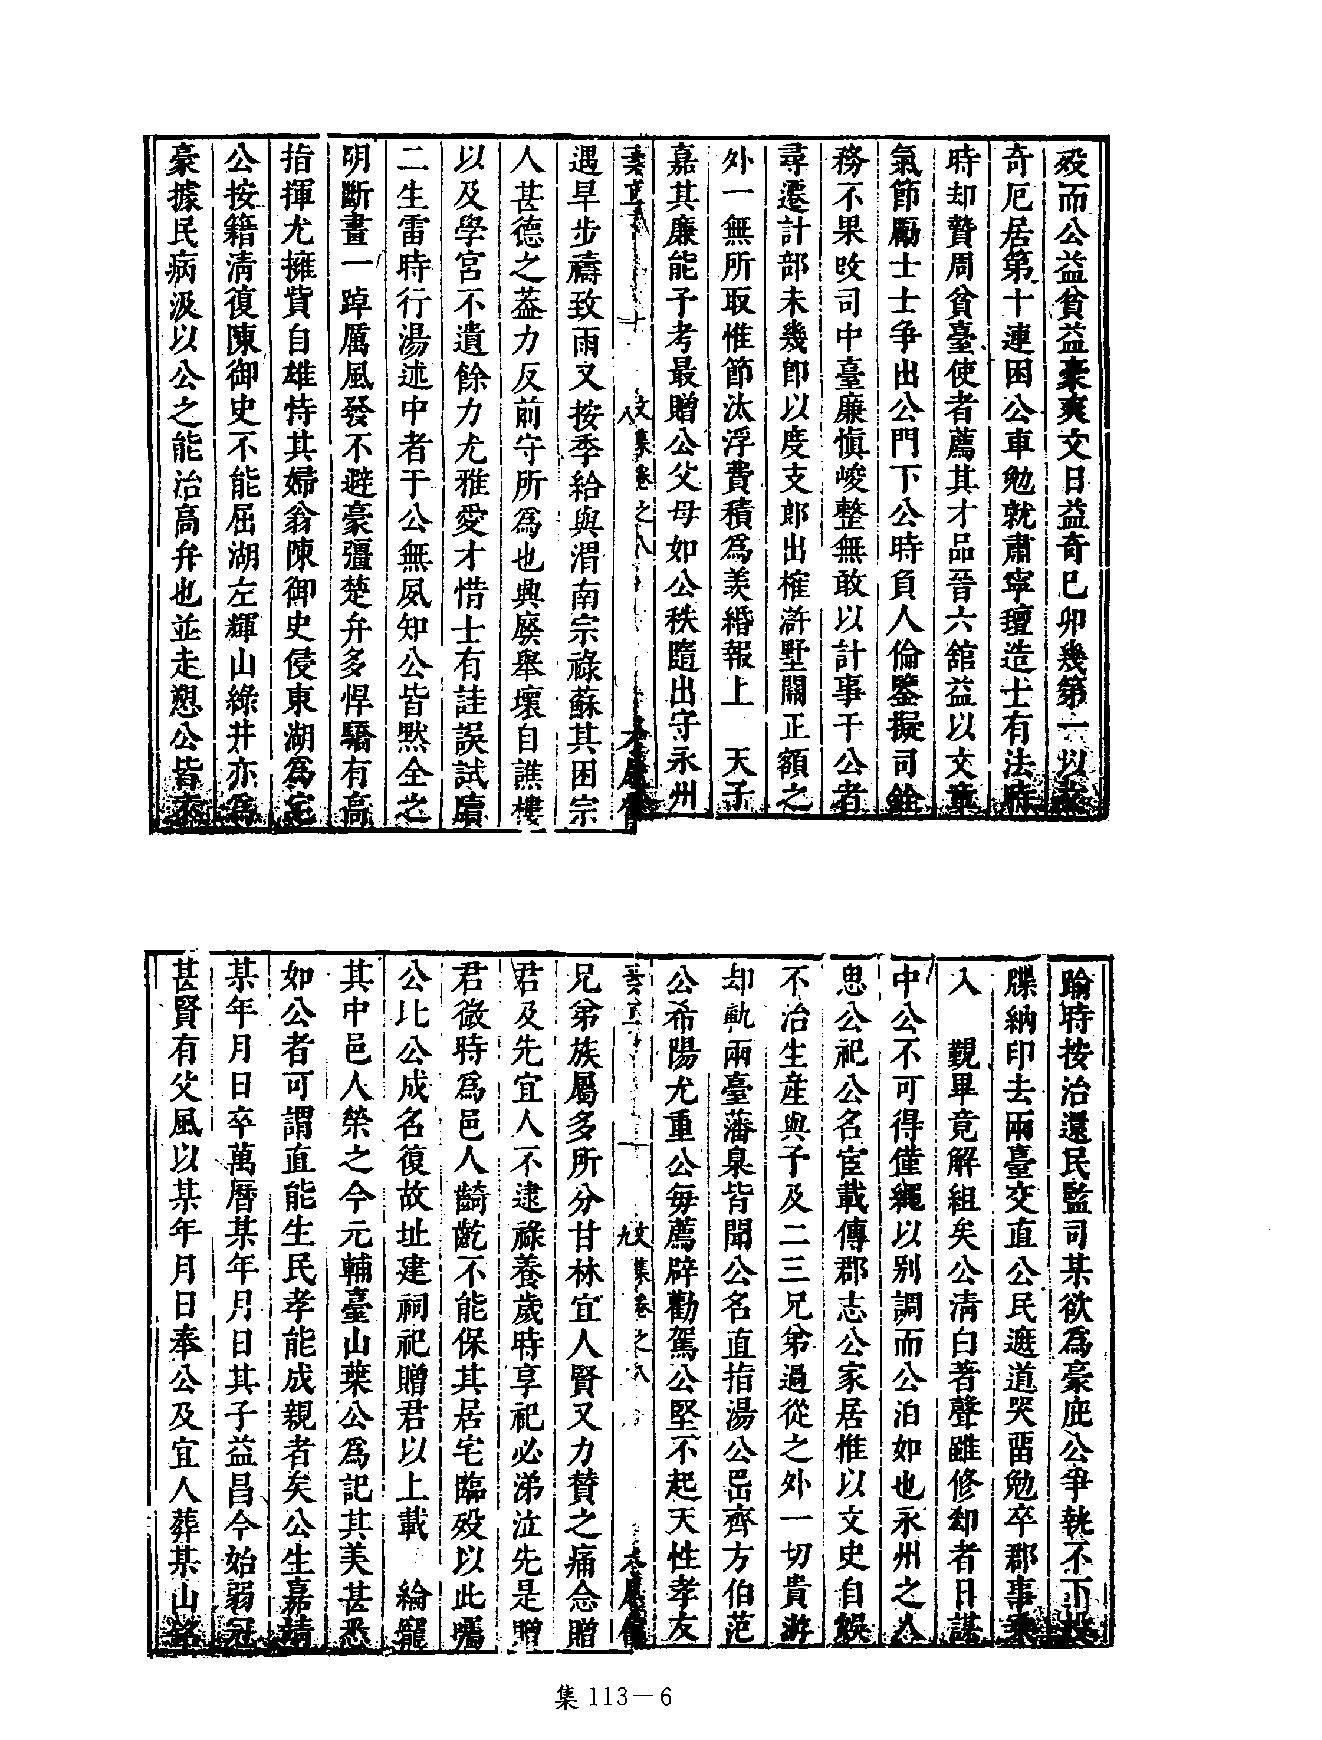 歿而公益貧益豪爽文日益奇已卯幾第一以
奇厄居第十連困公車勉就肅寧壇造士有法
時却贄周貧臺使者薦其才品晉六舘益以文章
氣節勵士士爭出公門下公時負人倫鑒擬司銓
務不果改司中臺廉愼峻整無敢以計事干公者
尋遷計部未幾卽以度支郎出榷滸墅關正額之
外一無所取惟節汰浮費積爲羨緡報上　天子
嘉其廉能予考最贈公父母如公秩隨出守永州
文集卷之八　八
遇旱步禱致雨又按季給與渭南宗祿蘇其困宗
人甚德之葢力反前守所爲也興廢舉壞自譙樓
以及學宮不遺餘力尤雅愛才惜士有詿誤試牘
二生雷時行湯述中者于公無夙知公皆黙全之
明斷畫一踔厲風發不避豪彊楚弁多悍驕有高
指揮尤擁貲自雄恃其婦翁陳御史侵東湖爲宅
公按籍清復陳御史不能屈湖左輝山綠井亦爲
豪據民病汲以公之能治高弁也並走愬公皆
踰時按治還民監司某欲爲豪庇公爭執不下投
牒納印去兩臺交直公民遮道哭畱勉卒郡事
入　覲畢竟解組矣公清白著聲雖修却者日謀
中公不可得僅繩以别調而公泊如也永州之人
思公祀公名宦載傳郡志公家居惟以文史自娛
不治生産與予及二三兄弟過從之外一切貴游
却軌兩臺藩臬皆聞公名直指湯公喦齊方伯范
公希陽尤重公每薦辟勸駕公堅不起天性孝友
文集卷之八　九
兄弟族屬多所分甘林宜人賢又力賛之痛念贈
君及先宜人不逮祿養歲時享祀必涕泣先是贈
君微時爲邑人齮齕不能保其居宅臨歿以此囑
公比公成名復故址建祠祀贈君以上載　綸寵
其中邑人榮之今元輔臺山葉公爲記其美甚悉
如公者可謂直能生民孝能成親者矣公生嘉靖
某年月日卒萬曆某年月日其子益昌今始弱冠
甚賢有父風以某年月日奉公及宜人葬某山銘
集 113－6